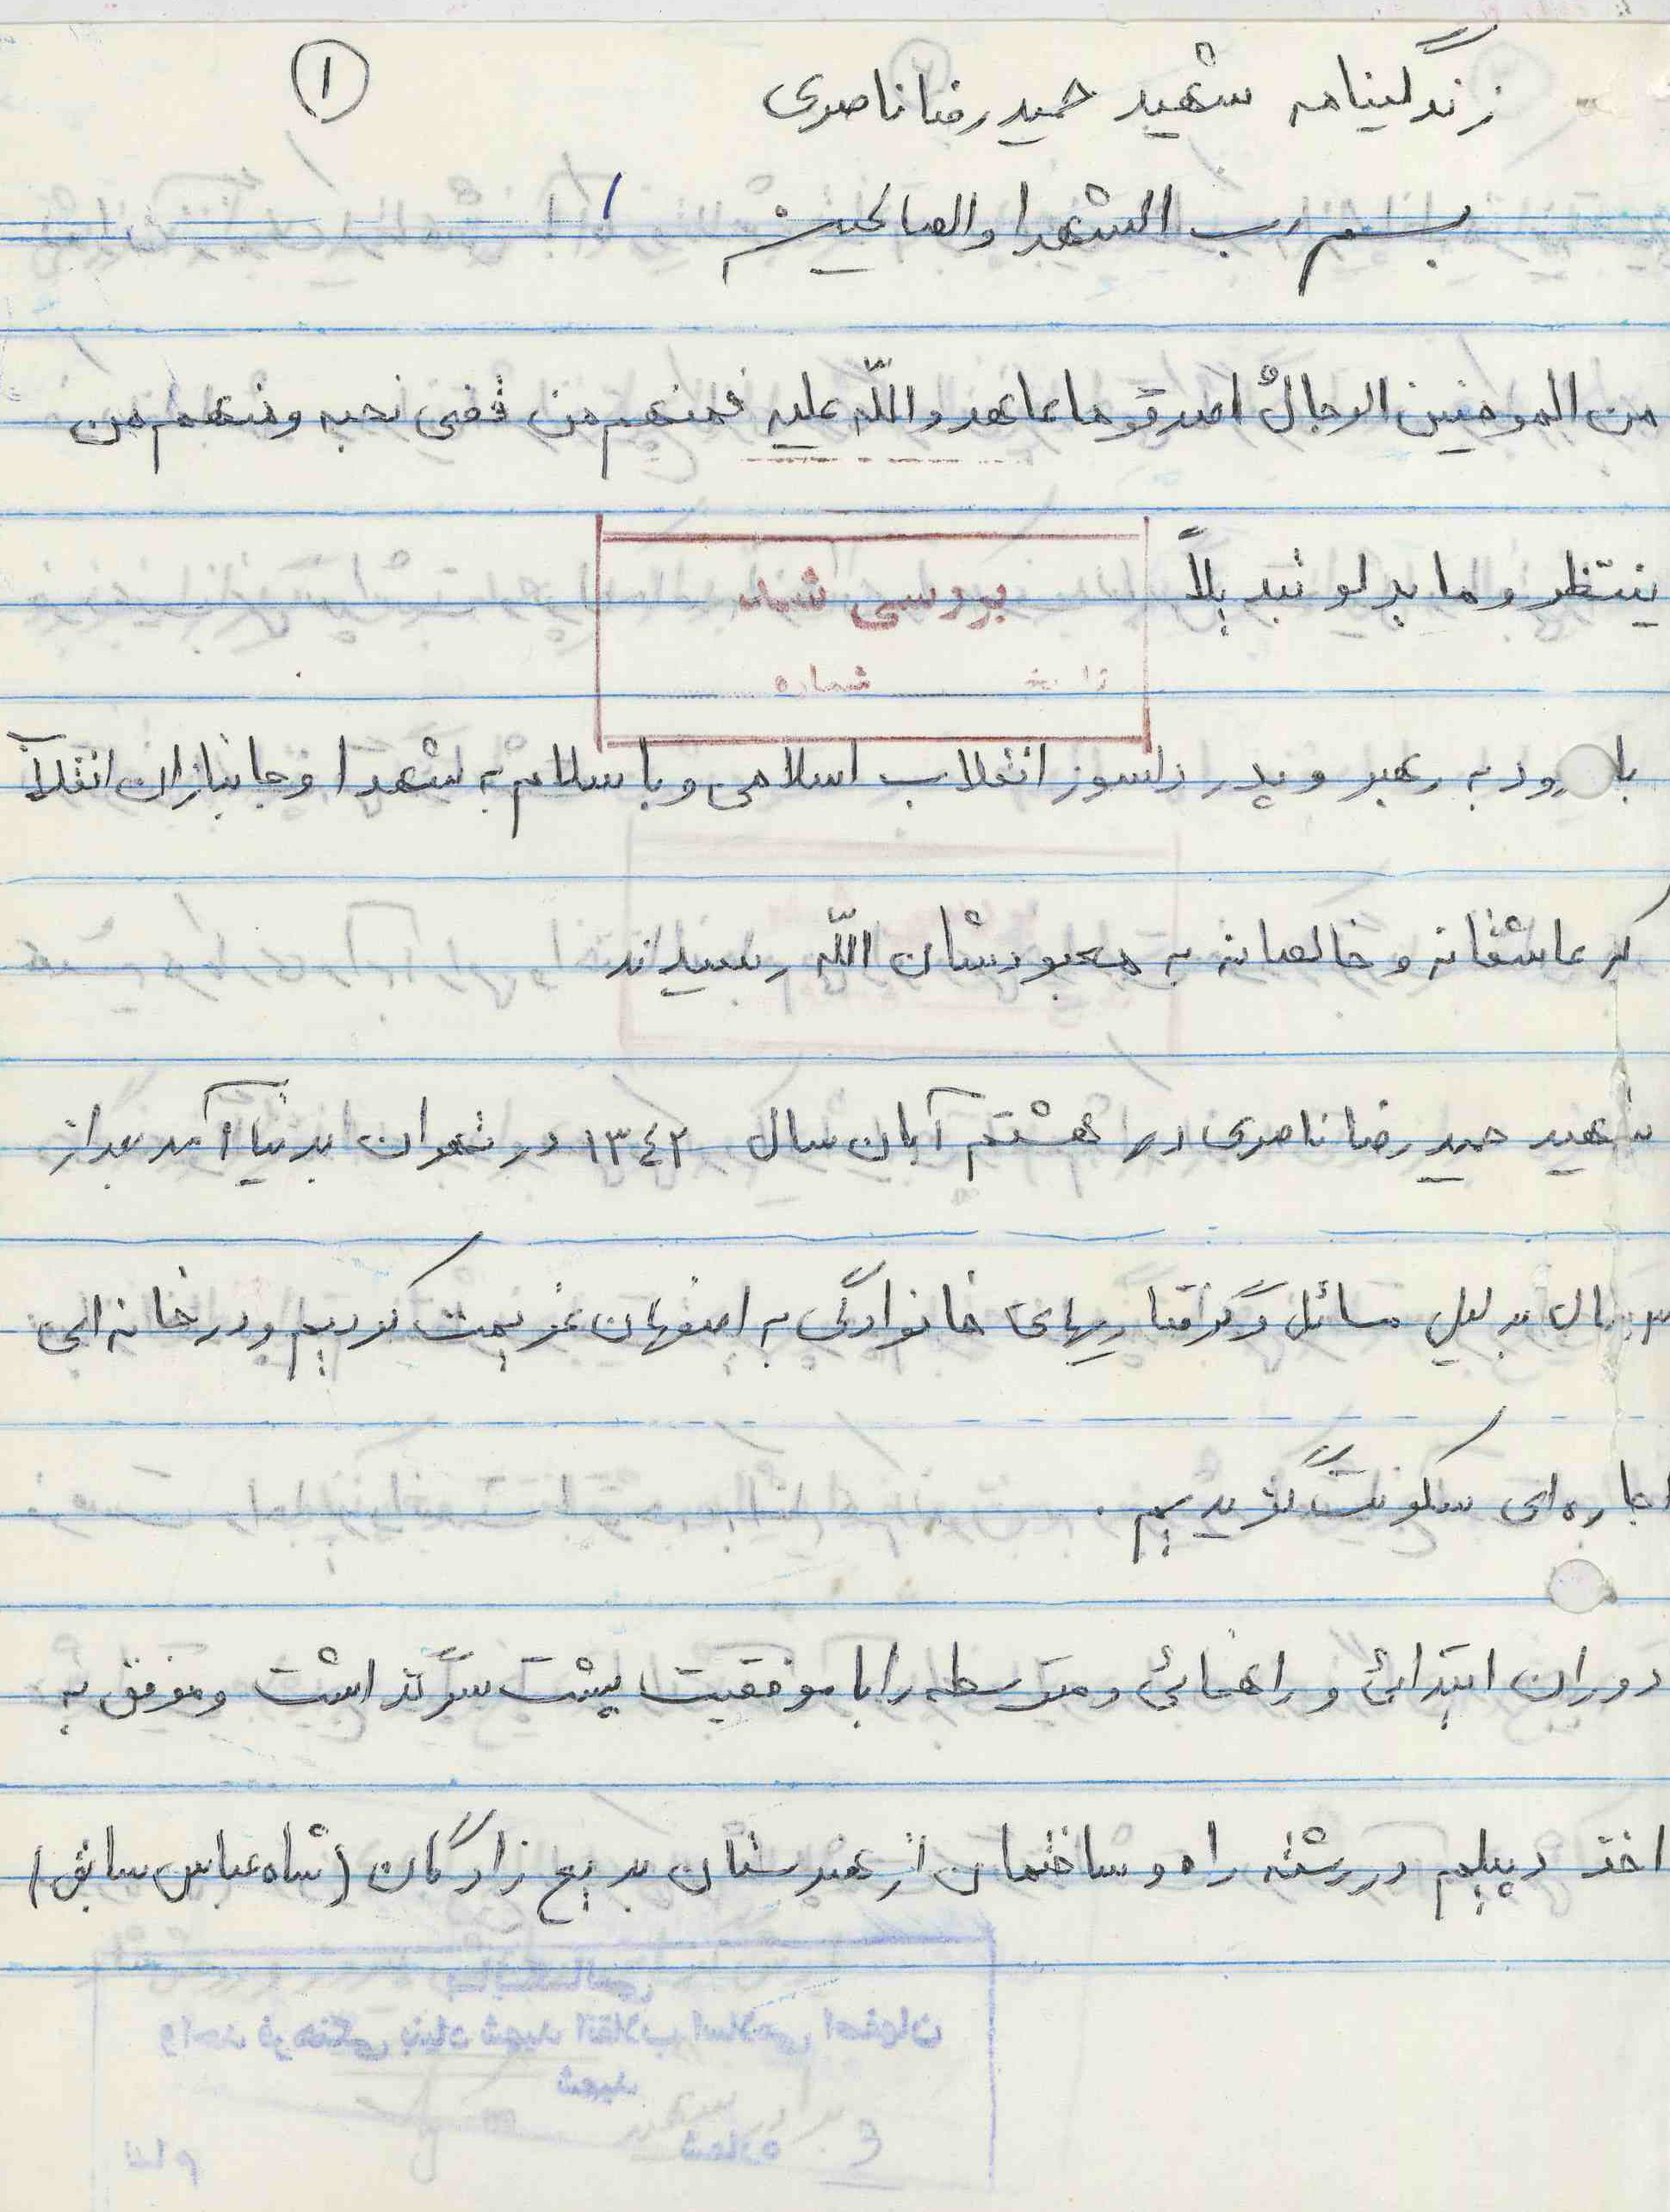 زندگینامه شهید حمیدرضا ناصری
۱
بسم رب الشهدا و الصالحین
من المومنین الرجالٌ اصدقو ما عاهدو اللّه علیه فمنهم من قضی نحبه و منهم من
ینتظر و ما بدلو تبدیلاً
بررسی شد
تاریخ شماره
با رود به رهبر و پدر دلسوز انقلاب اسلامی و با سلام به شهدا و جانبازان انقلاب
که عاشقانه و خالصانه به معبودشان اللّه رسیداند
شهید حمیدرضا ناصری در هشتم آبان سال ۱۳۴۲ در تهران بدنیا آمد بعد از
۳ سال به دلیل مسائل و گرفتاریهای خانوادگی به اصفهان عزیمت کردیم و در خانه ای
اجاره ای سکونت گزیدیم .
دوران ابتدائی و راهنمائی و متوسطه را با موفقیت پشت سر گذاشت و موفق به
اخذ دیپلم در رشته راه و ساختمان از هنرستان بدیع زادگان (شاه عباس سابق)
واحد فرهنگی بنیاد شهید انقلاب اسلامی اصفهان
شماره